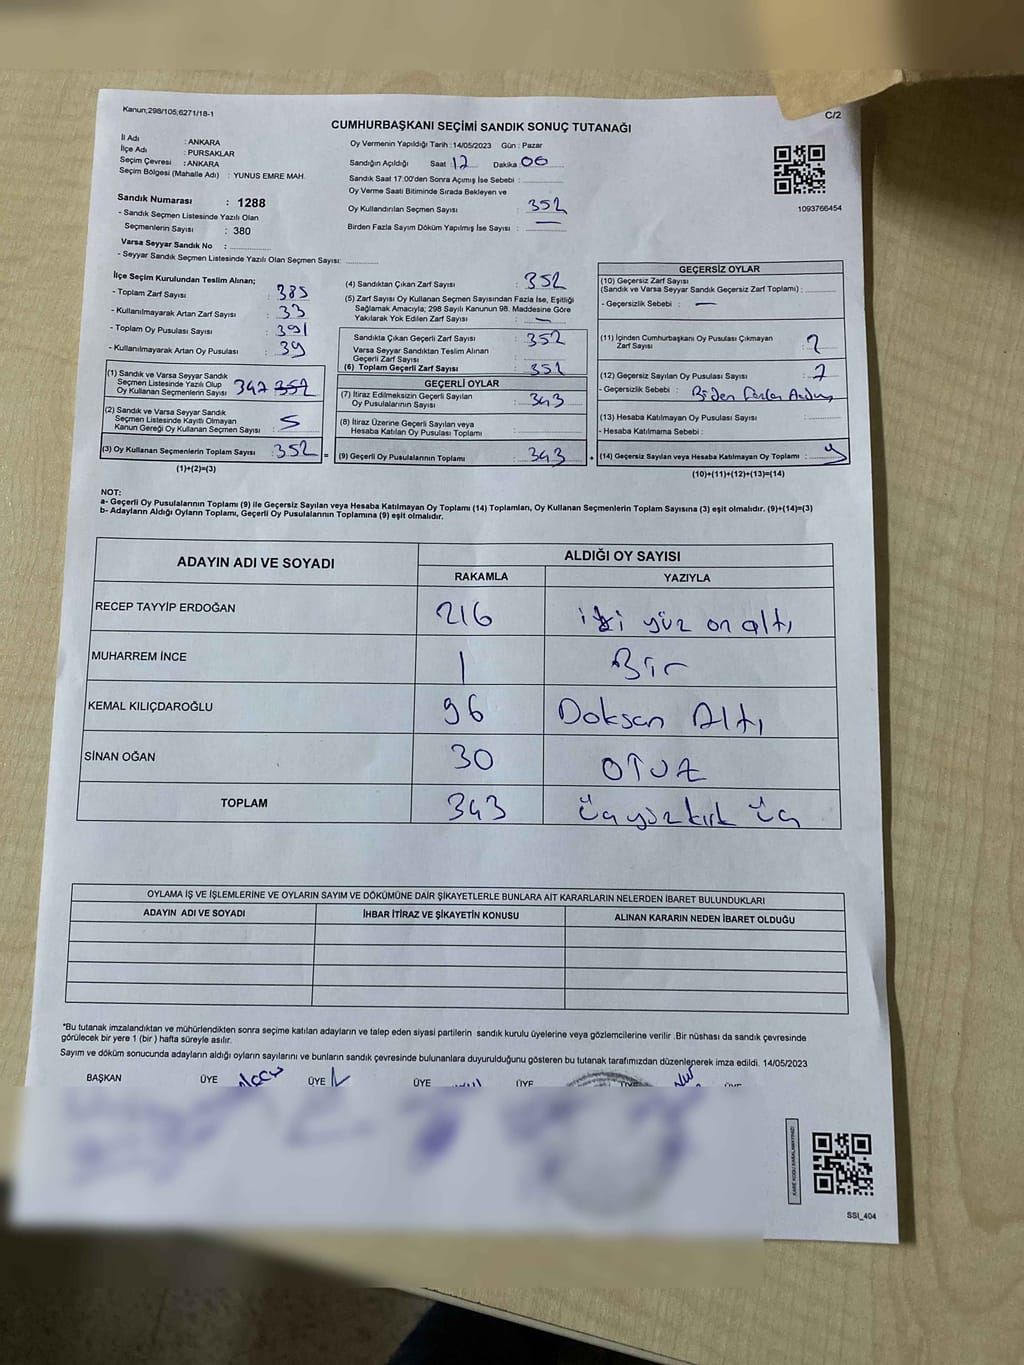 Kanun;298/105;6271/18-1
C/2
CUMHURBAŞKANI SEÇİMİ SANDIK SONUÇ TUTANAĞI
İl Adı : ANKARA
İlçe Adı : PURSAKLAR
Seçim Çevresi : ANKARA
Seçim Bölgesi (Mahalle Adı) : YUNUS EMRE MAH.
Oy Vermenin Yapıldığı Tarih :14/05/2023 Gün : Pazar
Sandığın Açıldığı Saat 17 Dakika 06
Sandık Saat 17:00'den Sonra Açımış İse Sebebi :
Oy Verme Saati Bitiminde Sırada Bekleyen ve
Oy Kullandırılan Seçmen Sayısı : 352
Birden Fazla Sayım Döküm Yapılmış İse Sayısı : —
1093766454
Sandık Numarası : 1288
- Sandık Seçmen Listesinde Yazılı Olan
Seçmenlerin Sayısı : 380
Varsa Seyyar Sandık No :
- Seyyar Sandık Seçmen Listesinde Yazılı Olan Seçmen Sayısı:
İlçe Seçim Kurulundan Teslim Alınan;
- Toplam Zarf Sayısı : 385
- Kullanılmayarak Artan Zarf Sayısı : 33
- Toplam Oy Pusulası Sayısı : 391
- Kullanılmayarak Artan Oy Pusulası : 39
(1) Sandık ve Varsa Seyyar Sandık
Seçmen Listesinde Yazılı Olup
Oy Kullanan Seçmenlerin Sayısı 347 352
(2) Sandık ve Varsa Seyyar Sandık
Seçmen Listesinde Kayıtlı Olmayan
Kanun Gereği Oy Kullanan Seçmen Sayısı : 5
(3) Oy Kullanan Seçmenlerin Toplam Sayısı : 352
(1)+(2)=(3)
(4) Sandıktan Çıkan Zarf Sayısı : 352
(5) Zarf Sayısı Oy Kullanan Seçmen Sayısından Fazla İse, Eşitliği
Sağlamak Amacıyla; 298 Sayılı Kanunun 98. Maddesine Göre
Yakılarak Yok Edilen Zarf Sayısı : —
Sandıkta Çıkan Geçerli Zarf Sayısı : 352
Varsa Seyyar Sandıktan Teslim Alınan
Geçerli Zarf Sayısı
(6) Toplam Geçerli Zarf Sayısı : 352
GEÇERLİ OYLAR
(7) İtiraz Edilmeksizin Geçerli Sayılan
Oy Pusulalarının Sayısı : 343
(8) İtiraz Üzerine Geçerli Sayılan veya
Hesaba Katılan Oy Pusulası Toplamı :
(9) Geçerli Oy Pusulalarının Toplamı : 343
GEÇERSİZ OYLAR
(10) Geçersiz Zarf Sayısı
(Sandık ve Varsa Seyyar Sandık Geçersiz Zarf Toplamı) :
- Geçersizlik Sebebi : —
(11) İçinden Cumhurbaşkanı Oy Pusulası Çıkmayan
Zarf Sayısı : 2
(12) Geçersiz Sayılan Oy Pusulası Sayısı : 7
- Geçersizlik Sebebi :
(13) Hesaba Katılmayan Oy Pusulası Sayısı :
- Hesaba Katılmama Sebebi :
(14) Geçersiz Sayılan veya Hesaba Katılmayan Oy Toplamı : 9
(10)+(11)+(12)+(13)=(14)
NOT:
a- Geçerli Oy Pusulalarının Toplamı (9) ile Geçersiz Sayılan veya Hesaba Katılmayan Oy Toplamı (14) Toplamları, Oy Kullanan Seçmenlerin Toplam Sayısına (3) eşit olmalıdır. (9)+(14)=(3)
b- Adayların Aldığı Oyların Toplamı, Geçerli Oy Pusulalarının Toplamına (9) eşit olmalıdır.
ADAYIN ADI VE SOYADI ALDIĞI OY SAYISI
RAKAMLA YAZIYLA
RECEP TAYYİP ERDOĞAN 216 iki yüz on altı
MUHARREM İNCE 1 Bir
KEMAL KILIÇDAROĞLU 96 Doksan Altı
SİNAN OĞAN 30 OTUZ
TOPLAM 343 üçyüzkırk üç
OYLAMA İŞ VE İŞLEMLERİNE VE OYLARIN SAYIM VE DÖKÜMÜNE DAİR ŞİKAYETLERLE BUNLARA AİT KARARLARIN NELERDEN İBARET BULUNDUKLARI
ADAYIN ADI VE SOYADI İHBAR İTİRAZ VE ŞİKAYETİN KONUSU ALINAN KARARIN NEDEN İBARET OLDUĞU
*Bu tutanak imzalandıktan ve mühürlendikten sonra seçime katılan adayların ve talep eden siyasi partilerin sandık kurulu üyelerine veya gözlemcilerine verilir. Bir nüshası da sandık çevresinde
görülecek bir yere 1 (bir ) hafta süreyle asılır.
Sayım ve döküm sonucunda adayların aldığı oyların sayılarını ve bunların sandık çevresinde bulunanlara duyurulduğunu gösteren bu tutanak tarafımızdan düzenlenerek imza edildi. 14/05/2023
BAŞKAN ÜYE ÜYE ÜYE ÜYE ÜYE ÜYE
SSI_404